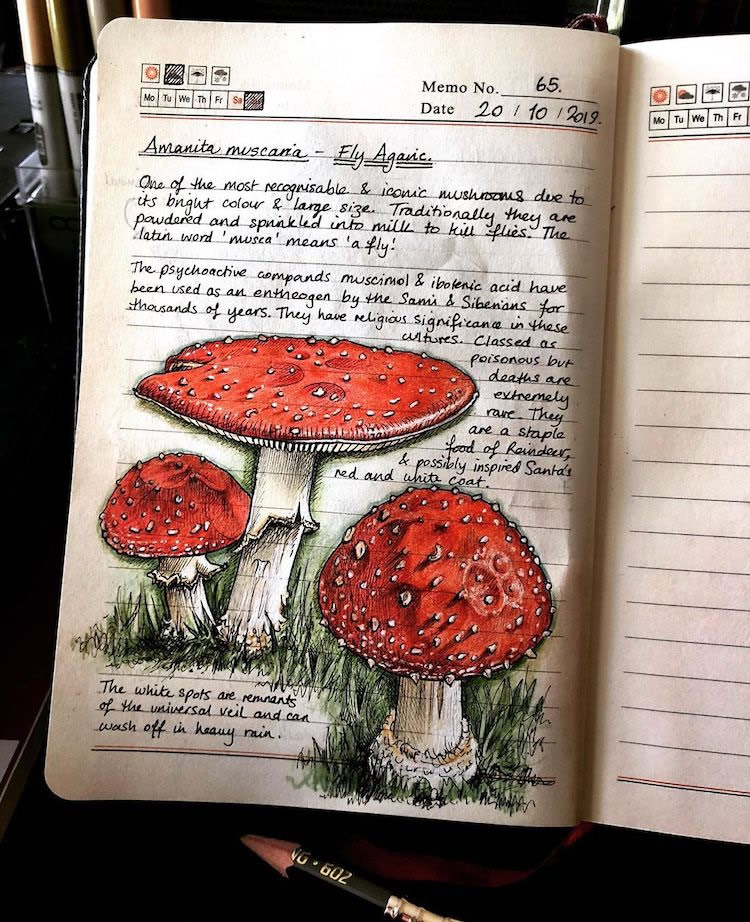 Memo No. 65.
Mo Tu We Th Fr Sa
Date 20 / 10 / 2019.
Mo Tu We Th Fr
Amanita muscaria - Fly Agaric.
One of the most recognisable & iconic mushrooms due to
its bright colour & large size. Traditionally they are
powdered and sprinkled into milk to kill flies. The
latin word 'musca' means 'a fly'!
The psychoactive compounds muscimol & ibotenic acid have
been used as an entheogen by the Samis & Siberians for
thousands of years. They have religious significance in these
cultures. Classed as
poisonous but
deaths are
extremely
rare. They
are a staple
food of Reindeer,
& possibly inspired Santa's
red and white coat.
The white spots are remnants
of the universal veil and can
wash off in heavy rain.
NG · 602